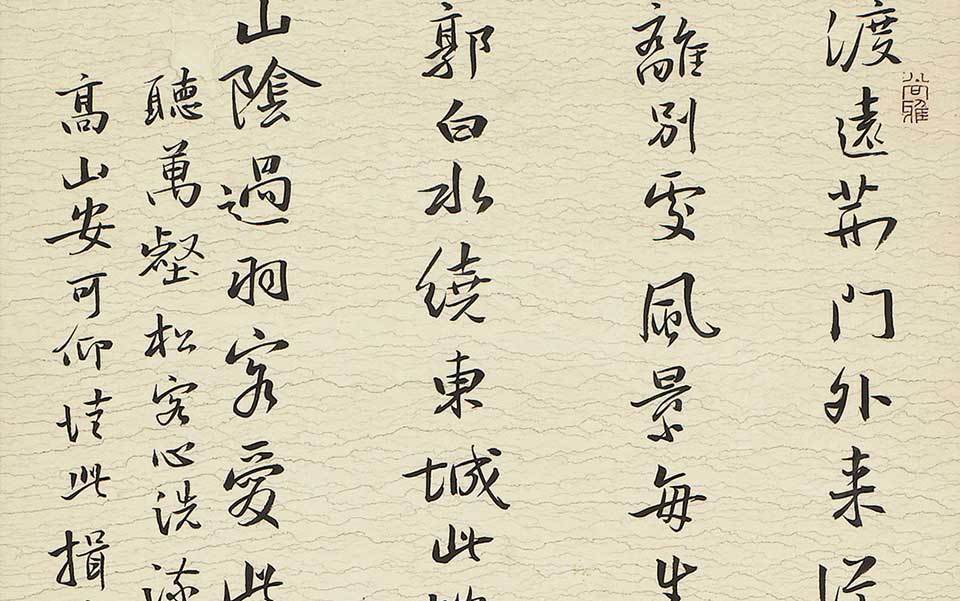 渡遠荆门外来從
尚雅
離別處風景每生
郭白水繞東城此地
山陰過羽客爱此
聽萬壑松客心洗流
高山安可仰徒此揖